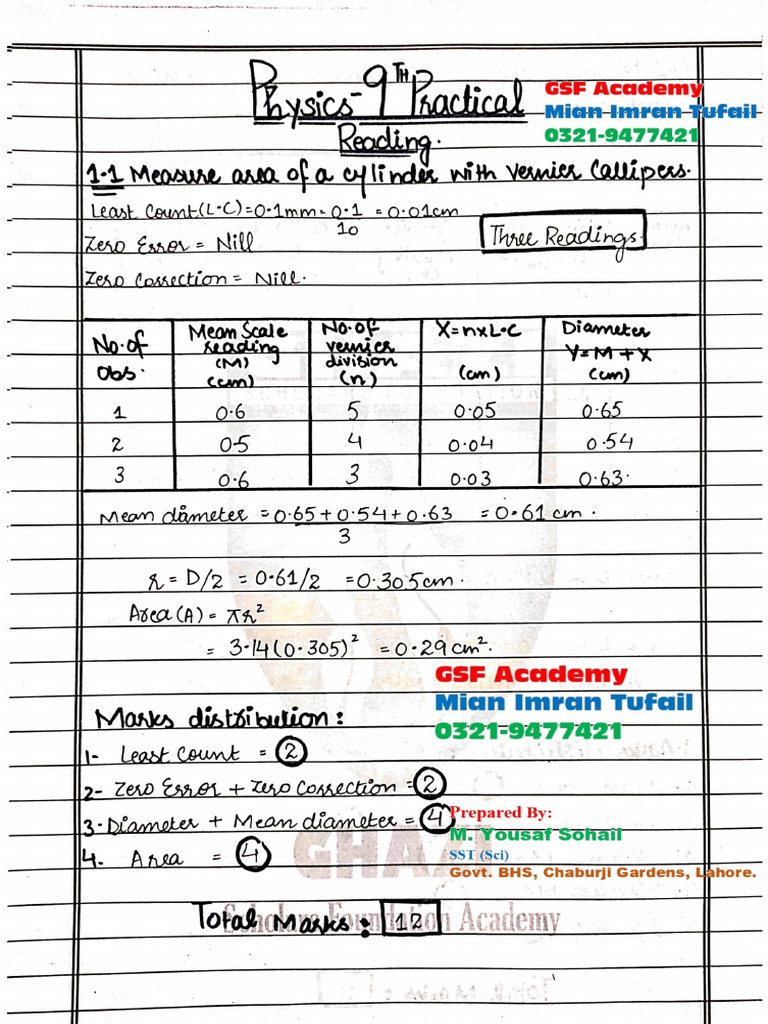 Physics - 9TH Practical
Reading.
GSF Academy
Mian Imran Tufail
0321-9477421
1.1 Measure area of a cylinder with vernier Callipers.
Least Count (L.C) = 0.1mm = 0.1/10 = 0.01cm
Zero Error = Nill
Three Readings.
Zero Correction = Nill.
No. of obs. | Mean Scale reading (M) (cm) | No. of vernier division (n) | X=n×L.C (cm) | Diameter Y=M+X (cm)
1 | 0.6 | 5 | 0.05 | 0.65
2 | 0.5 | 4 | 0.04 | 0.54
3 | 0.6 | 3 | 0.03 | 0.63
Mean diameter = 0.65+0.54+0.63/3 = 0.61 cm.
r = D/2 = 0.61/2 = 0.305cm.
Area (A) = πr²
= 3.14(0.305)² = 0.29cm².
GSF Academy
Mian Imran Tufail
0321-9477421
Marks distribution:
1- Least Count = 2
2- Zero Error + Zero Correction = 2
3- Diameter + Mean diameter = 4
Prepared By:
M. Yousaf Sohail
4. Area = 4
SST (Sci)
Govt. BHS, Chaburji Gardens, Lahore.
GHAZI
Total Marks: 12
Scholars Foundation Academy